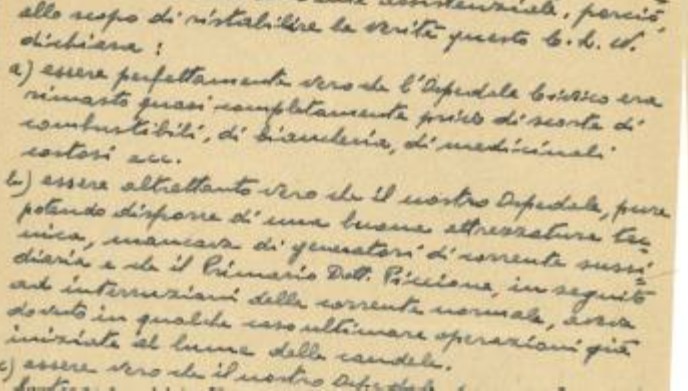 assistenziale, perciò,
allo scopo di ristabilire la verità questo C.L.N.
dichiara:
a) essere perfettamente vero che l'Ospedale Civico era
rimasto quasi completamente privo di scorte di
combustibili, di biancheria, di medicinali
costosi ecc.
b) essere altrettanto vero che il nostro Ospedale, pure
potendo disporre di una buona attrezzatura tec=
nica, mancava di generatori di corrente sussi=
diaria e che il Primario Dott. Piccione, in seguito
ad interruzioni della corrente normale, aveva
dovuto in qualche caso ultimare operazioni già
iniziate al lume delle candele.
c) essere vero che il nostro Ospedale